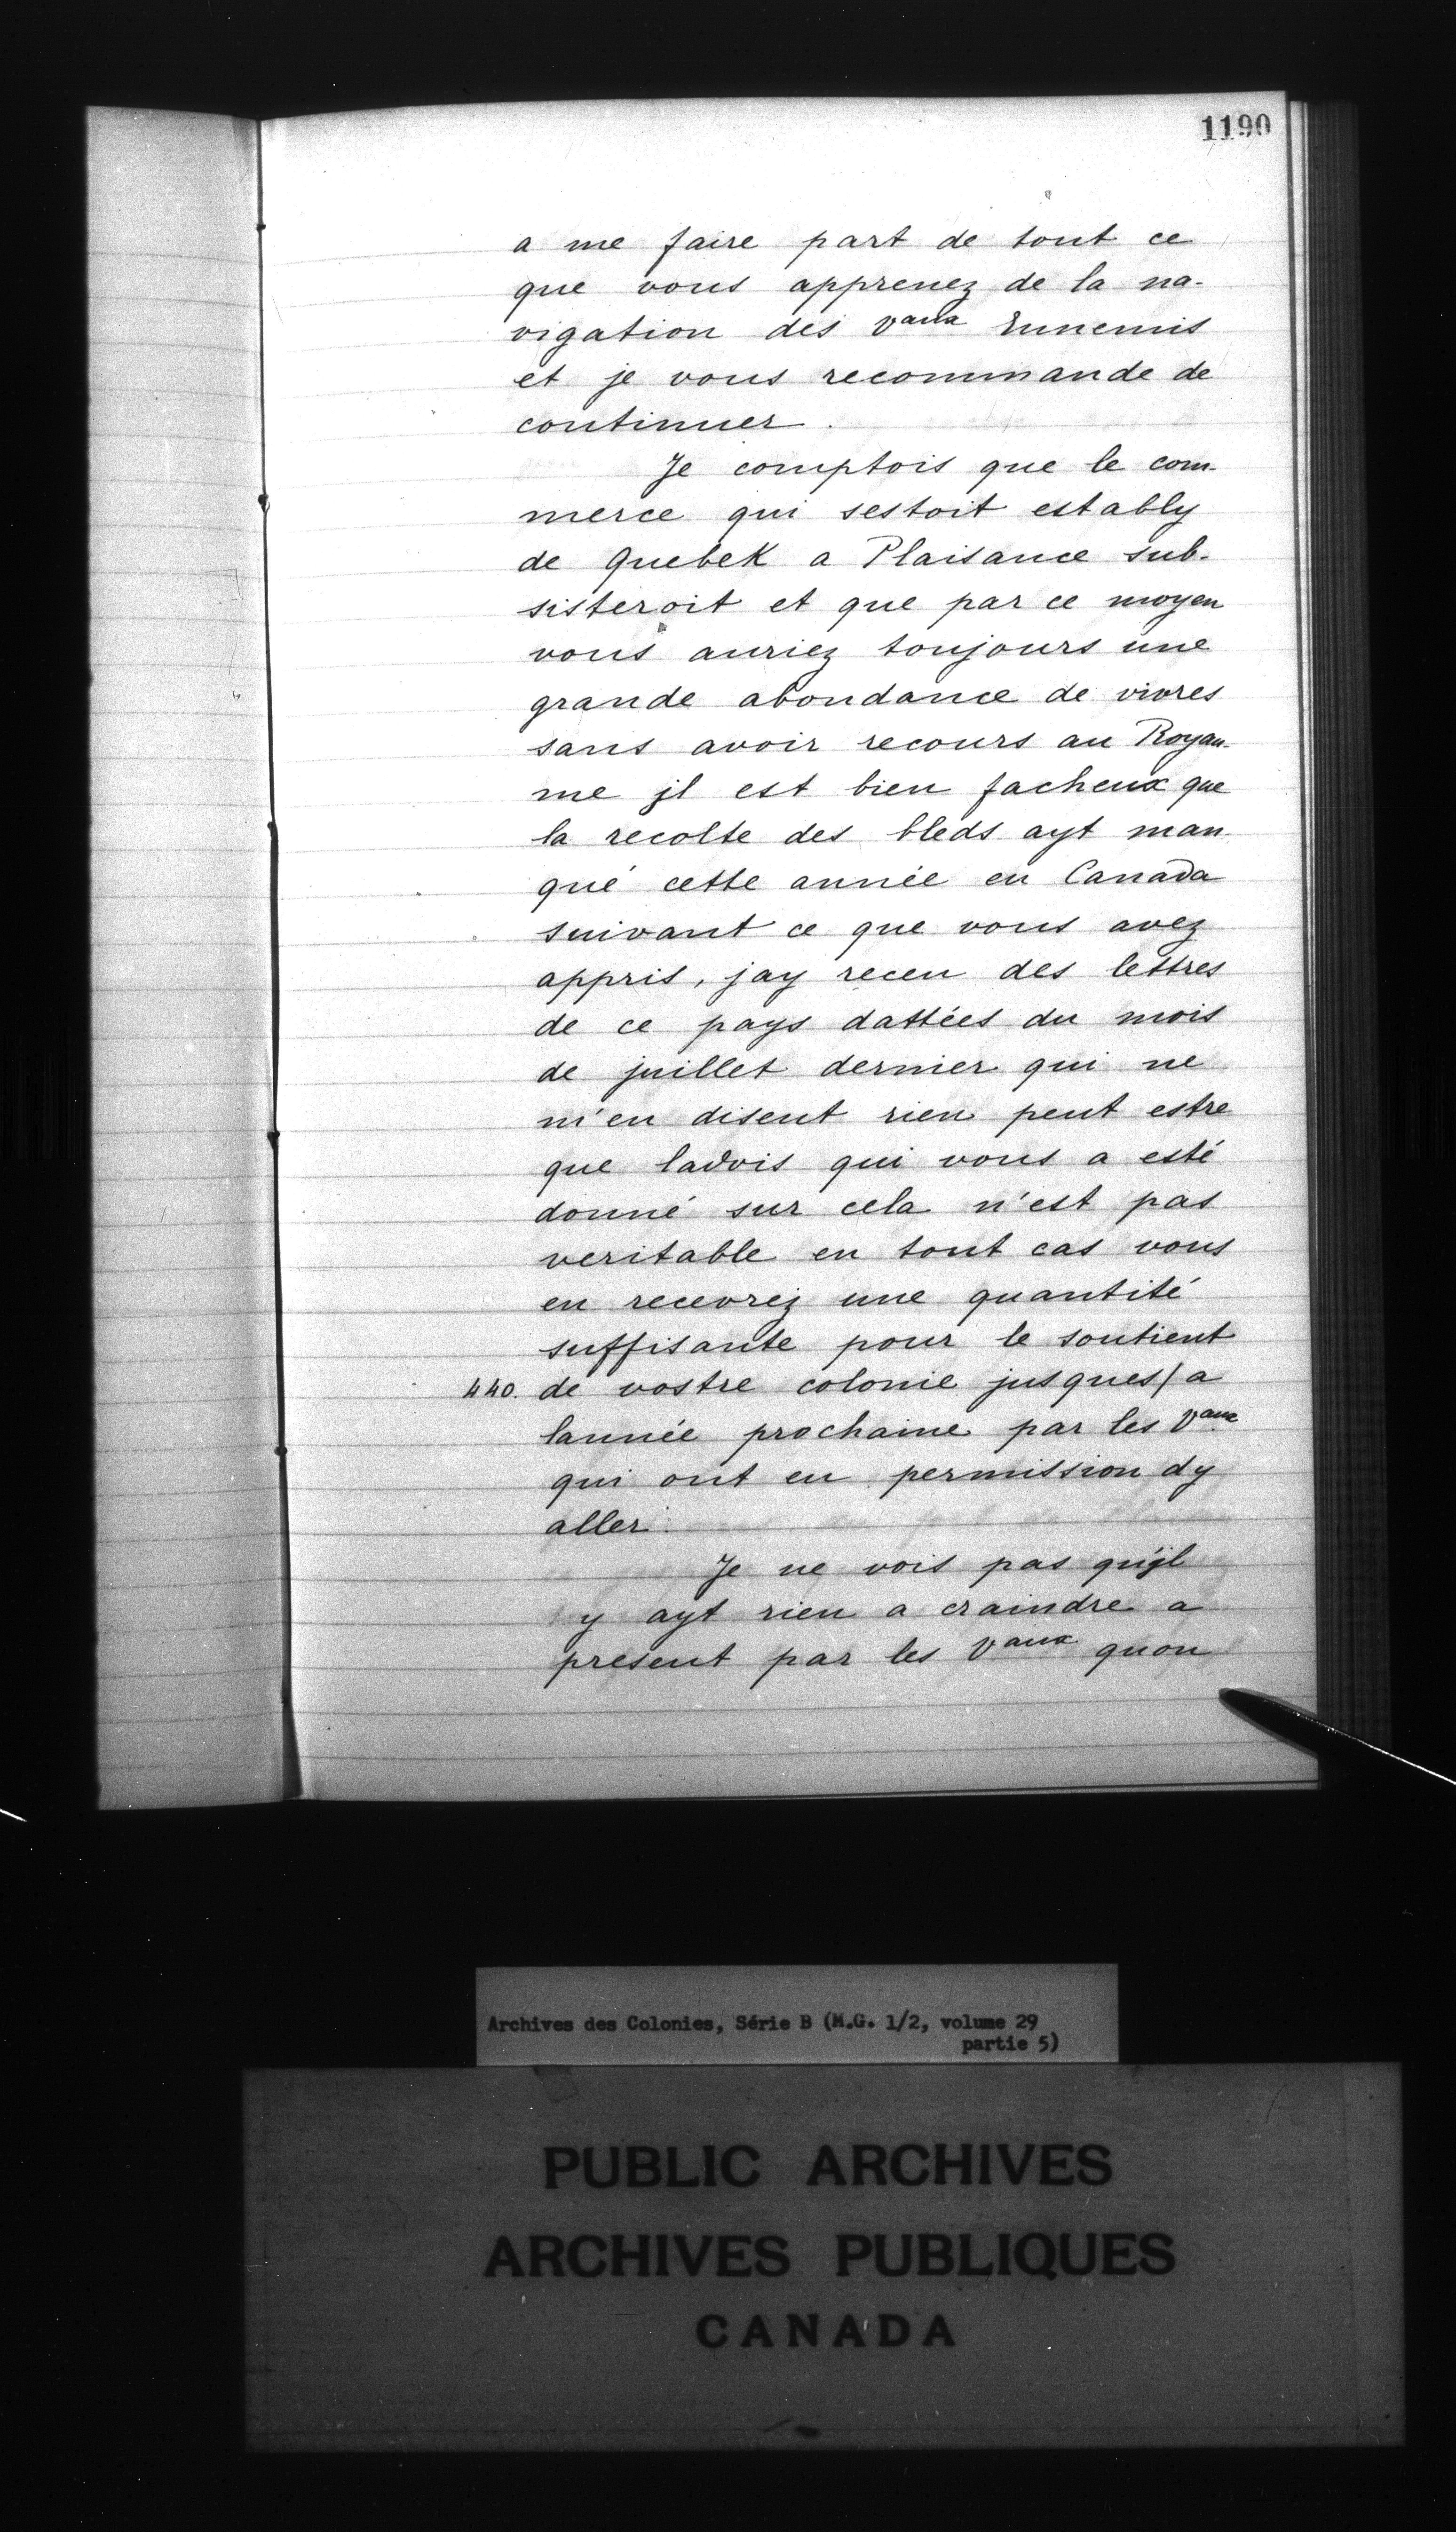 1190
a me faire part de tout ce
que vous apprenez de la na-
vigation des Vaux Ennemis
et je vous recommande de
continuer.
Je comptois que le com-
merce qui sestoit estably
de Quebek a Plaisance sub-
sisteroit et que par ce moyen
vous auriez toujours une
grande abondance de vivres
sans avoir recours au Royau-
me jl est bien facheux que
la recolte des bleds ayt man-
qué cette année en Canada
suivant ce que vous avez
appris, jay receu des lettres
de ce pays dattées du mois
de juillet dernier qui ne
m'en disent rien peut estre
que ladvis qui vous a esté
donné sur cela n'est pas
veritable en tout cas vous
en recevrez une quantité
suffisante pour le soutient
440. de vostre colonie jusques/a
lannée prochaine par les Vaux
qui ont eu permission dy
aller.
Je ne vois pas qu'jl
y ayt rien a craindre a
present par les Vaux quon
Archives des Colonies, Série B (M.G. 1/2, volume 29
partie 5)
PUBLIC ARCHIVES
ARCHIVES PUBLIQUES
CANADA